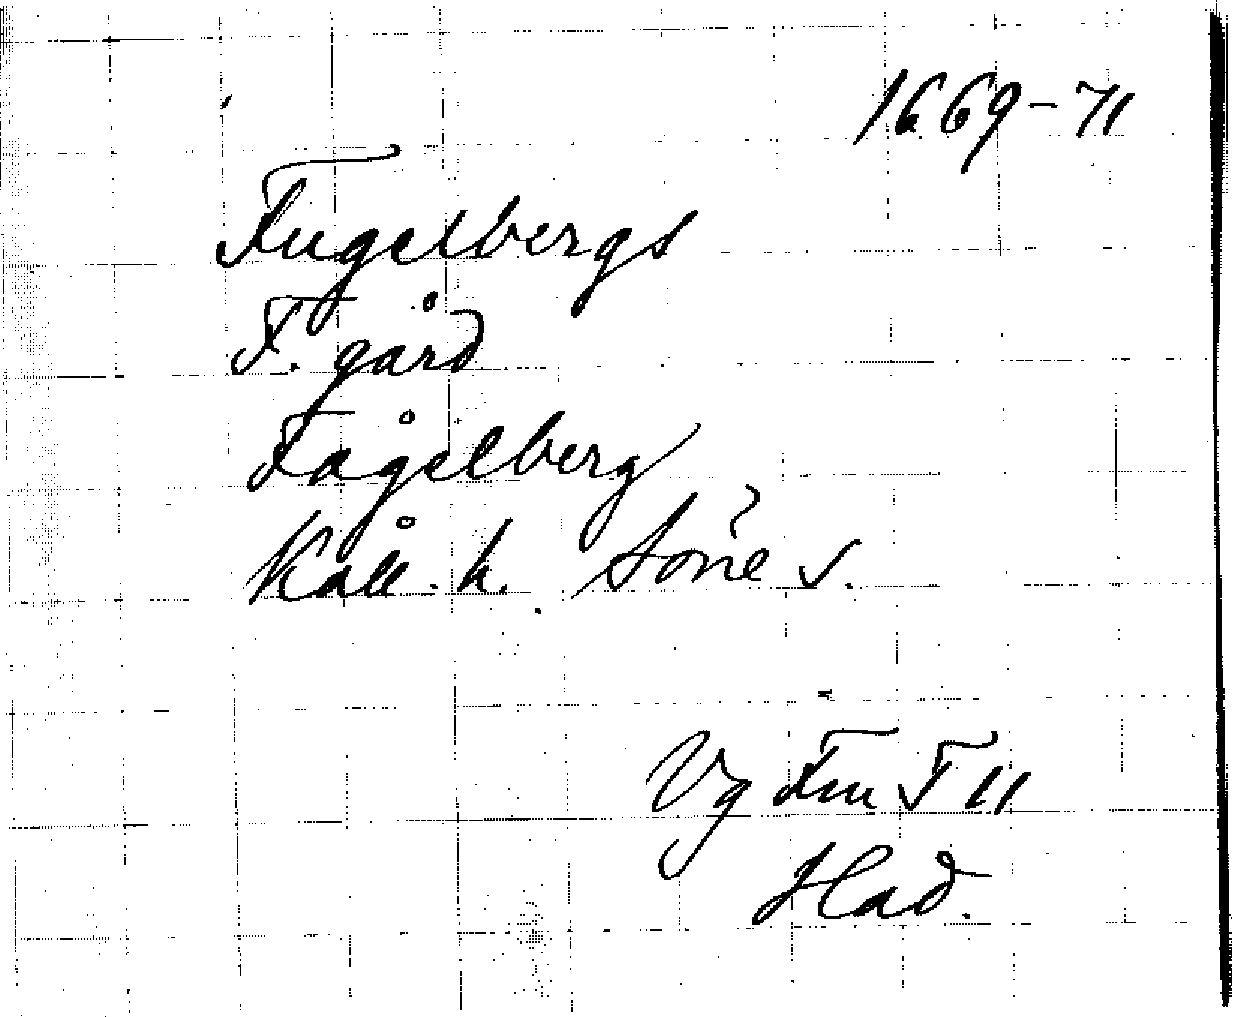 1669-71
Fugelbergs
F. gård
Fågelberg
Kåll. h. Söne s.
Vg Fru F 11
Had.